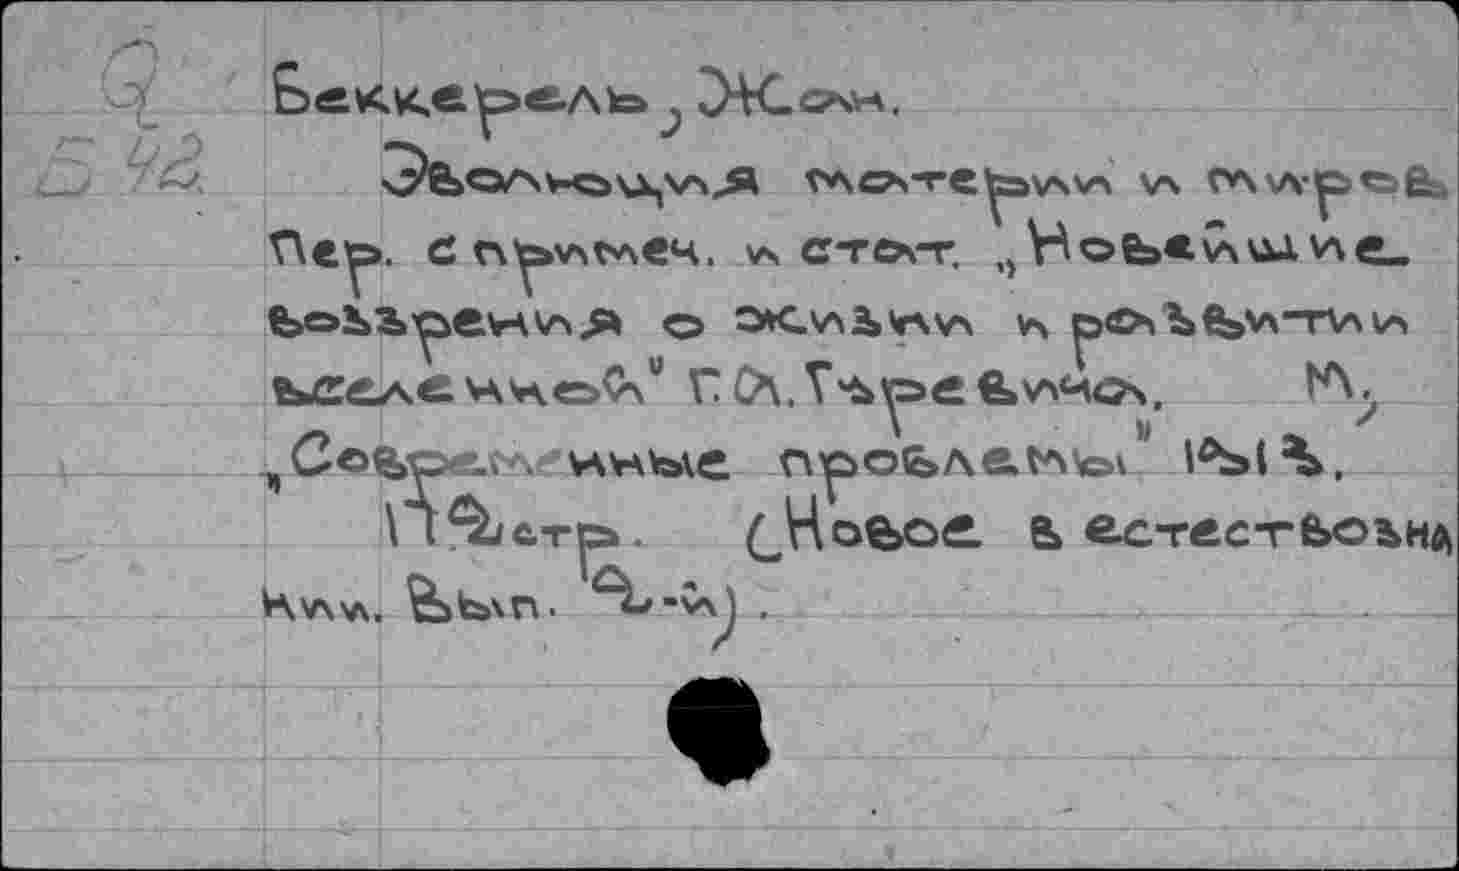 Q
Беккерель, Жан.
542
Эволюция материи и миров.
Пер. с примеч. и стат. „Новейшие
воззрения о жизни и развитии
вселенной" Г.А.Гуревича. М.,
„Современные проблемы"
стр. (Новое в естествозна
нии. Вып. 2-й).